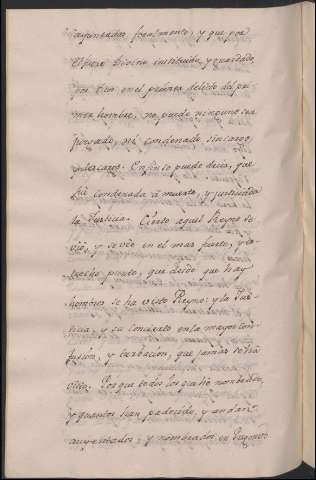 tapuntadas frealmente, y que por
Espera Divina instituida, y guardada
por Dios en el primer delito del pri
mer hombre, no puede ninguno ser
juzgado, ni condenado sin cargo,
y descargo. En fin se puede decir, que
fue condenada á muerte, y justiciada
la Justicia. Cierto aquel Reyno se
vió, y se vió en el mas fuerte, y es-
trecho punto, que desde que hay
hombres se ha visto Reyno: y la Jus-
ticia, y su concierto en la mayor con
fusion, y turbacion, que jamas se ha
visto. Porque todos los que he nombrado,
y quantos han padecido, y andan
ausentados, y nombrados en